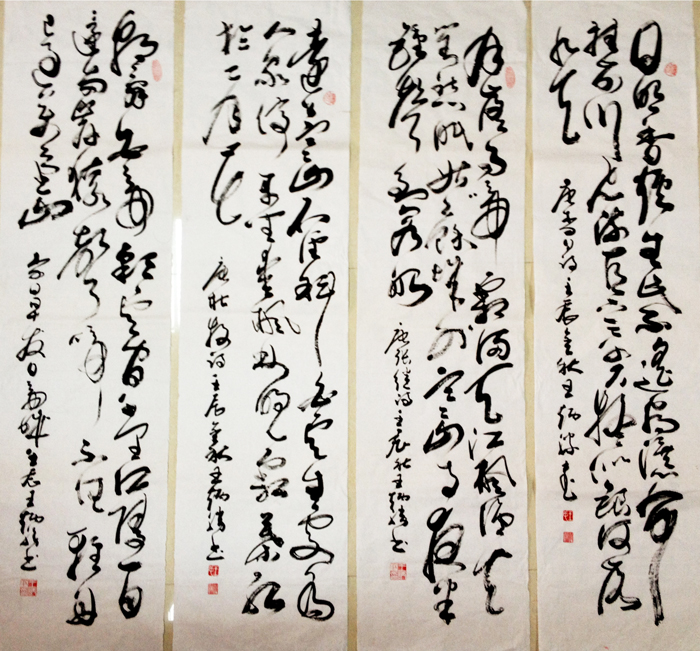 日照香炉生紫烟遥看瀑布
挂前川飞流直下三千尺疑是银河落
九天
唐李白诗壬辰金秋王炳书
月落乌啼霜满天江枫渔火
对愁眠姑苏城外寒山寺夜半
钟声到客船
唐张继诗壬辰秋王炳书
远上寒山石径斜白云生处有
人家停车坐爱枫林晚霜叶红
于二月花
唐杜牧诗壬辰金秋王炳书
朝辞白帝彩云间千里江陵一日
还两岸猿声啼不住轻舟
已过万重山
早发白帝城王炳书